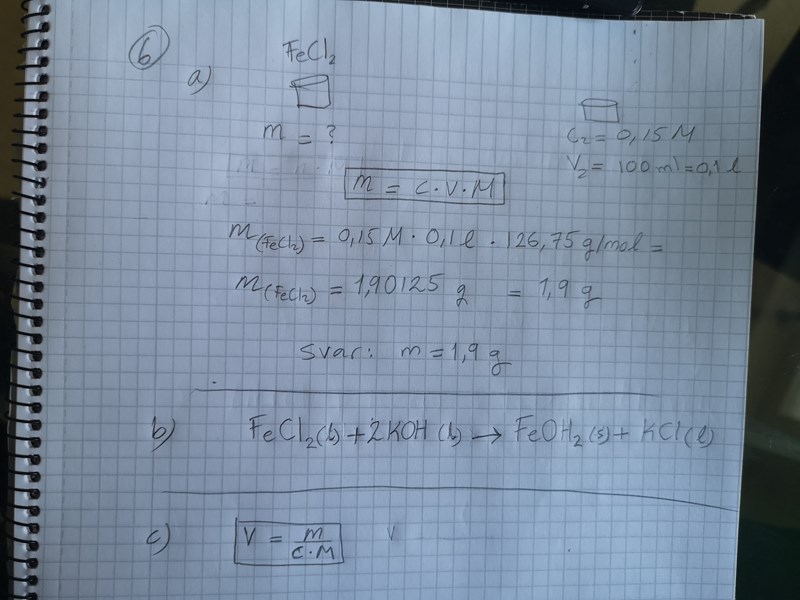 6
FeCl2
a)
m = ?
C2 = 0,15 M
V2 = 100 ml = 0,1 l
m = c·V·M
m(FeCl2) = 0,15 M · 0,1 l · 126,75 g/mol =
m(FeCl2) = 1,90125 g = 1,9 g
svar: m = 1,9 g
b) FeCl2(l) + 2KOH (l) → FeOH2(s) + KCl(l)
c) V = m / c·M V